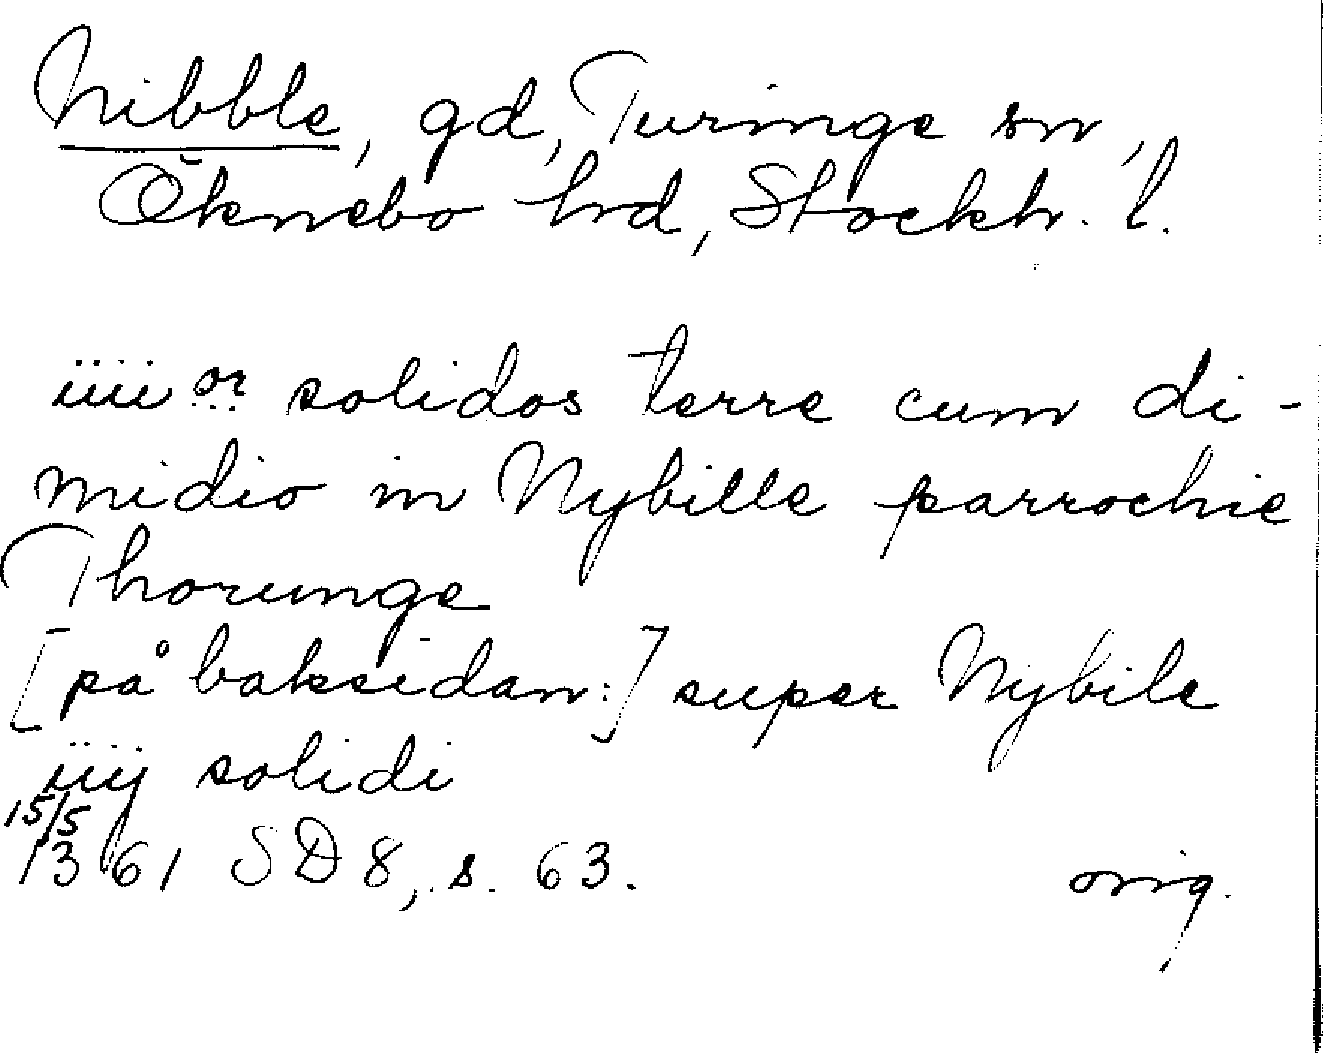 Nibble, gd, Turinge sn,
Öknebo hd, Stockh. l.
iiii or solidos terre cum di-
midio in Nybille parrochie
Thorunge
[på baksidan:] super Nybile
iiij solidi
15/5
1361 SD 8, s. 63. orig.